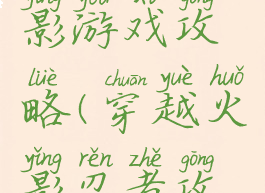 影游戏攻
lüè chuān yuè huǒ
略(穿越火
yǐng rěn zhě gōng
影忍者攻